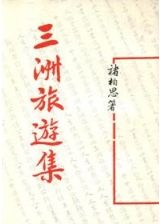 三洲旅遊集
褚柏思著